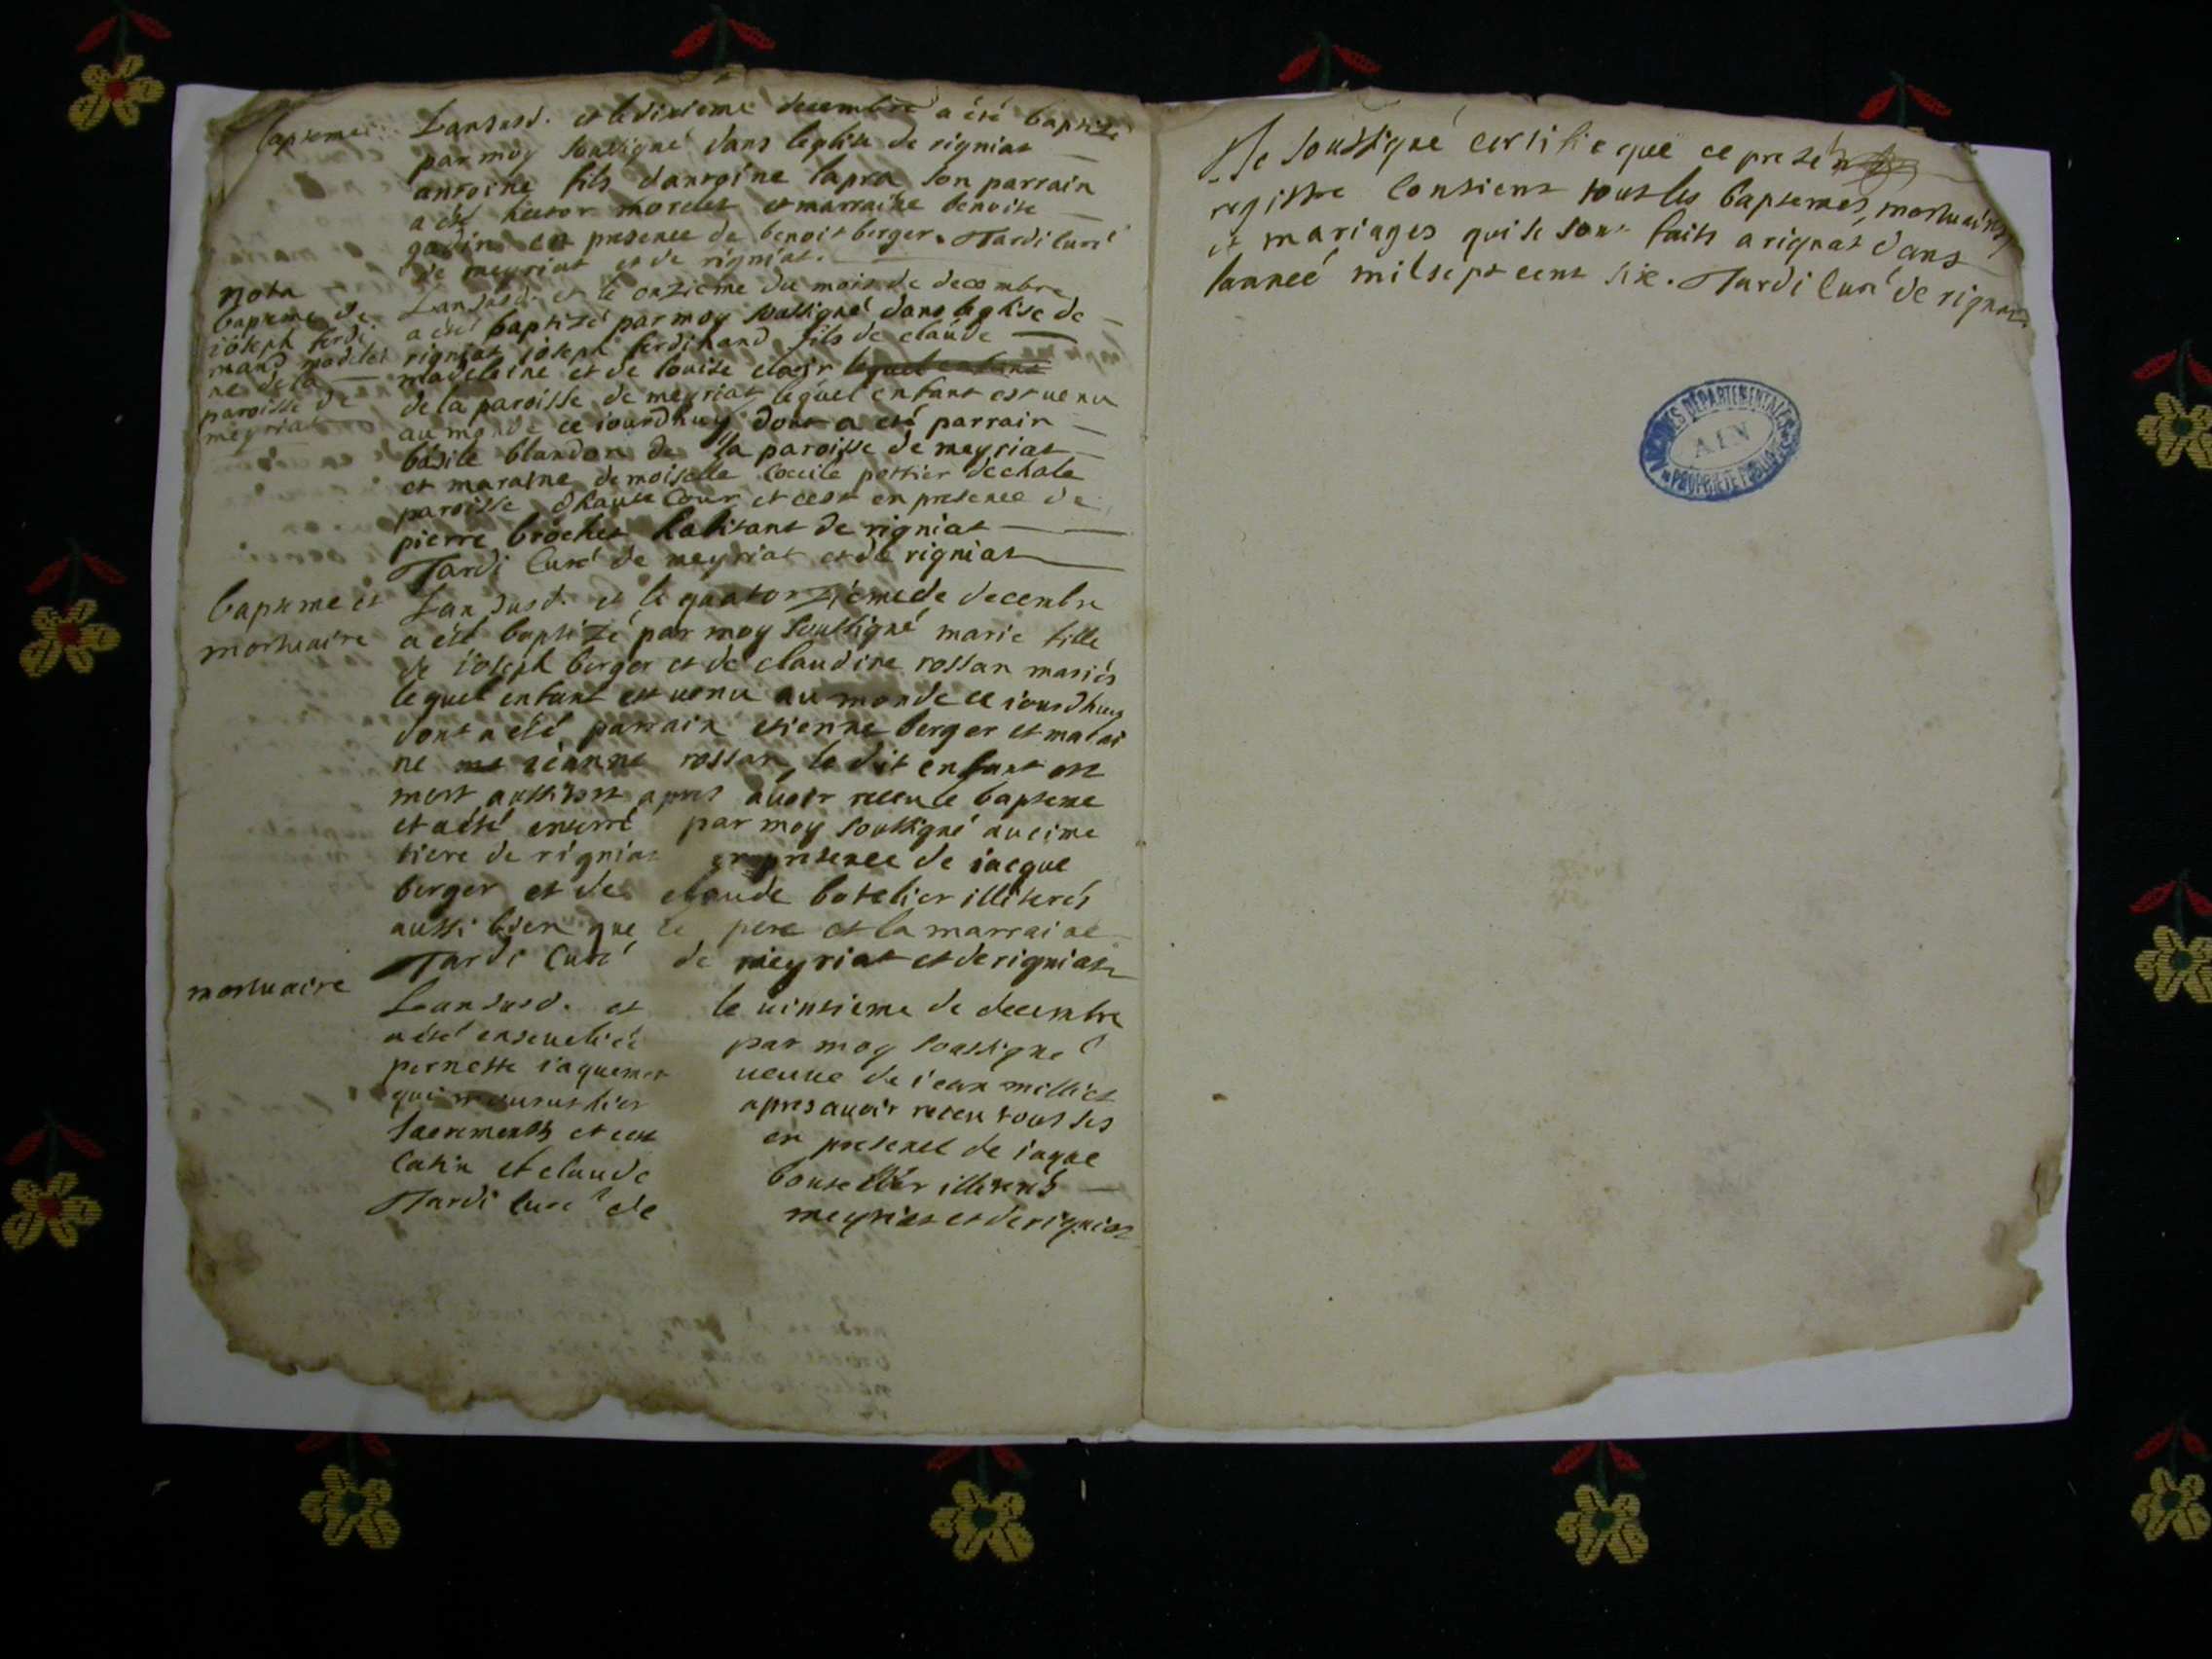 baptemes
Lan susd. et le dixieme decembre a été baptizé
par moy soussigné dans leglise de rigniat
antoine fils dantoine lapra son parrain
a été hector morelet et marraine benoite
godin en presence de benoit berger. Tardi curé
de meyriat et de rigniat.
nota
bapteme de
ioseph ferdi
mand madelei
ne de la
paroisse de
meyriat
Lan susd. et le onzieme du mois de decembre
a été baptizé par moy soussigné dans leglise de
rigniat ioseph ferdinand fils de claude
madeleine et de louise clair lequel enfant
de la paroisse de meyriat lequel enfant est venu
au monde ce iourdhuy dont a été parrain
basile blandon de la paroisse de meyriat
et maraine demoiselle cecile pottier de chale
paroisse dhaute cour et cest en presence de
pierre brochet habitant de rigniat
Tardi curé de meyriat et de rigniat
bapteme et
mortuaire
Lan susd. et le quatorziéme de decembre
a été baptizé par moy soussigné marie fille
de ioseph berger et de claudine rossan mariés
lequel enfant est venu au monde ce iourdhuy
dont a été parrain etienne berger et marai
ne ieanne rossan, le dit enfant est
mort aussitost apres avoir receu le bapteme
et a été enterré par moy soussigné au cime
tiere de rigniat en presence de iacque
berger et de claude botelier illiterés
aussi bien que le pere et la marraine
Tardi curé de meyriat et de rigniat
mortuaire
Lan susd. et le vintieme de decembre
a été ensevelie par moy soussigné
pernette iaquemet veuve de iean milliet
qui mourut hier apres avoir receu tous ses
sacrements et cest en presence de iaque
catin et claude boutellier illiterés
Tardi curé de meyriat et de rigniat
Ie soussigné certifie que ce present
registre contient tous les baptemes, mortuaires
et mariages qui se sont faits a rignat dans
lanneé mil sept cent six. Tardi curé de rigniat
ARCHIVES DÉPARTEMENTALES
AIN
PROPRIÉTÉ PUBLIQUE